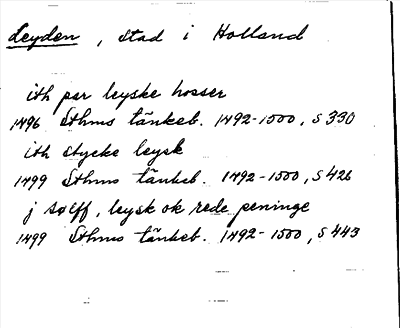 Leyden, stad i Holland
ith par leyske hosser
1496 Sthms tänkeb. 1492-1500, s 330
ith stycke leysk
1499 Sthms tänkeb. 1492-1500, s 426
j sølff, leysk ok rede peninge
1499 Sthms tänkeb. 1492-1500, s 443